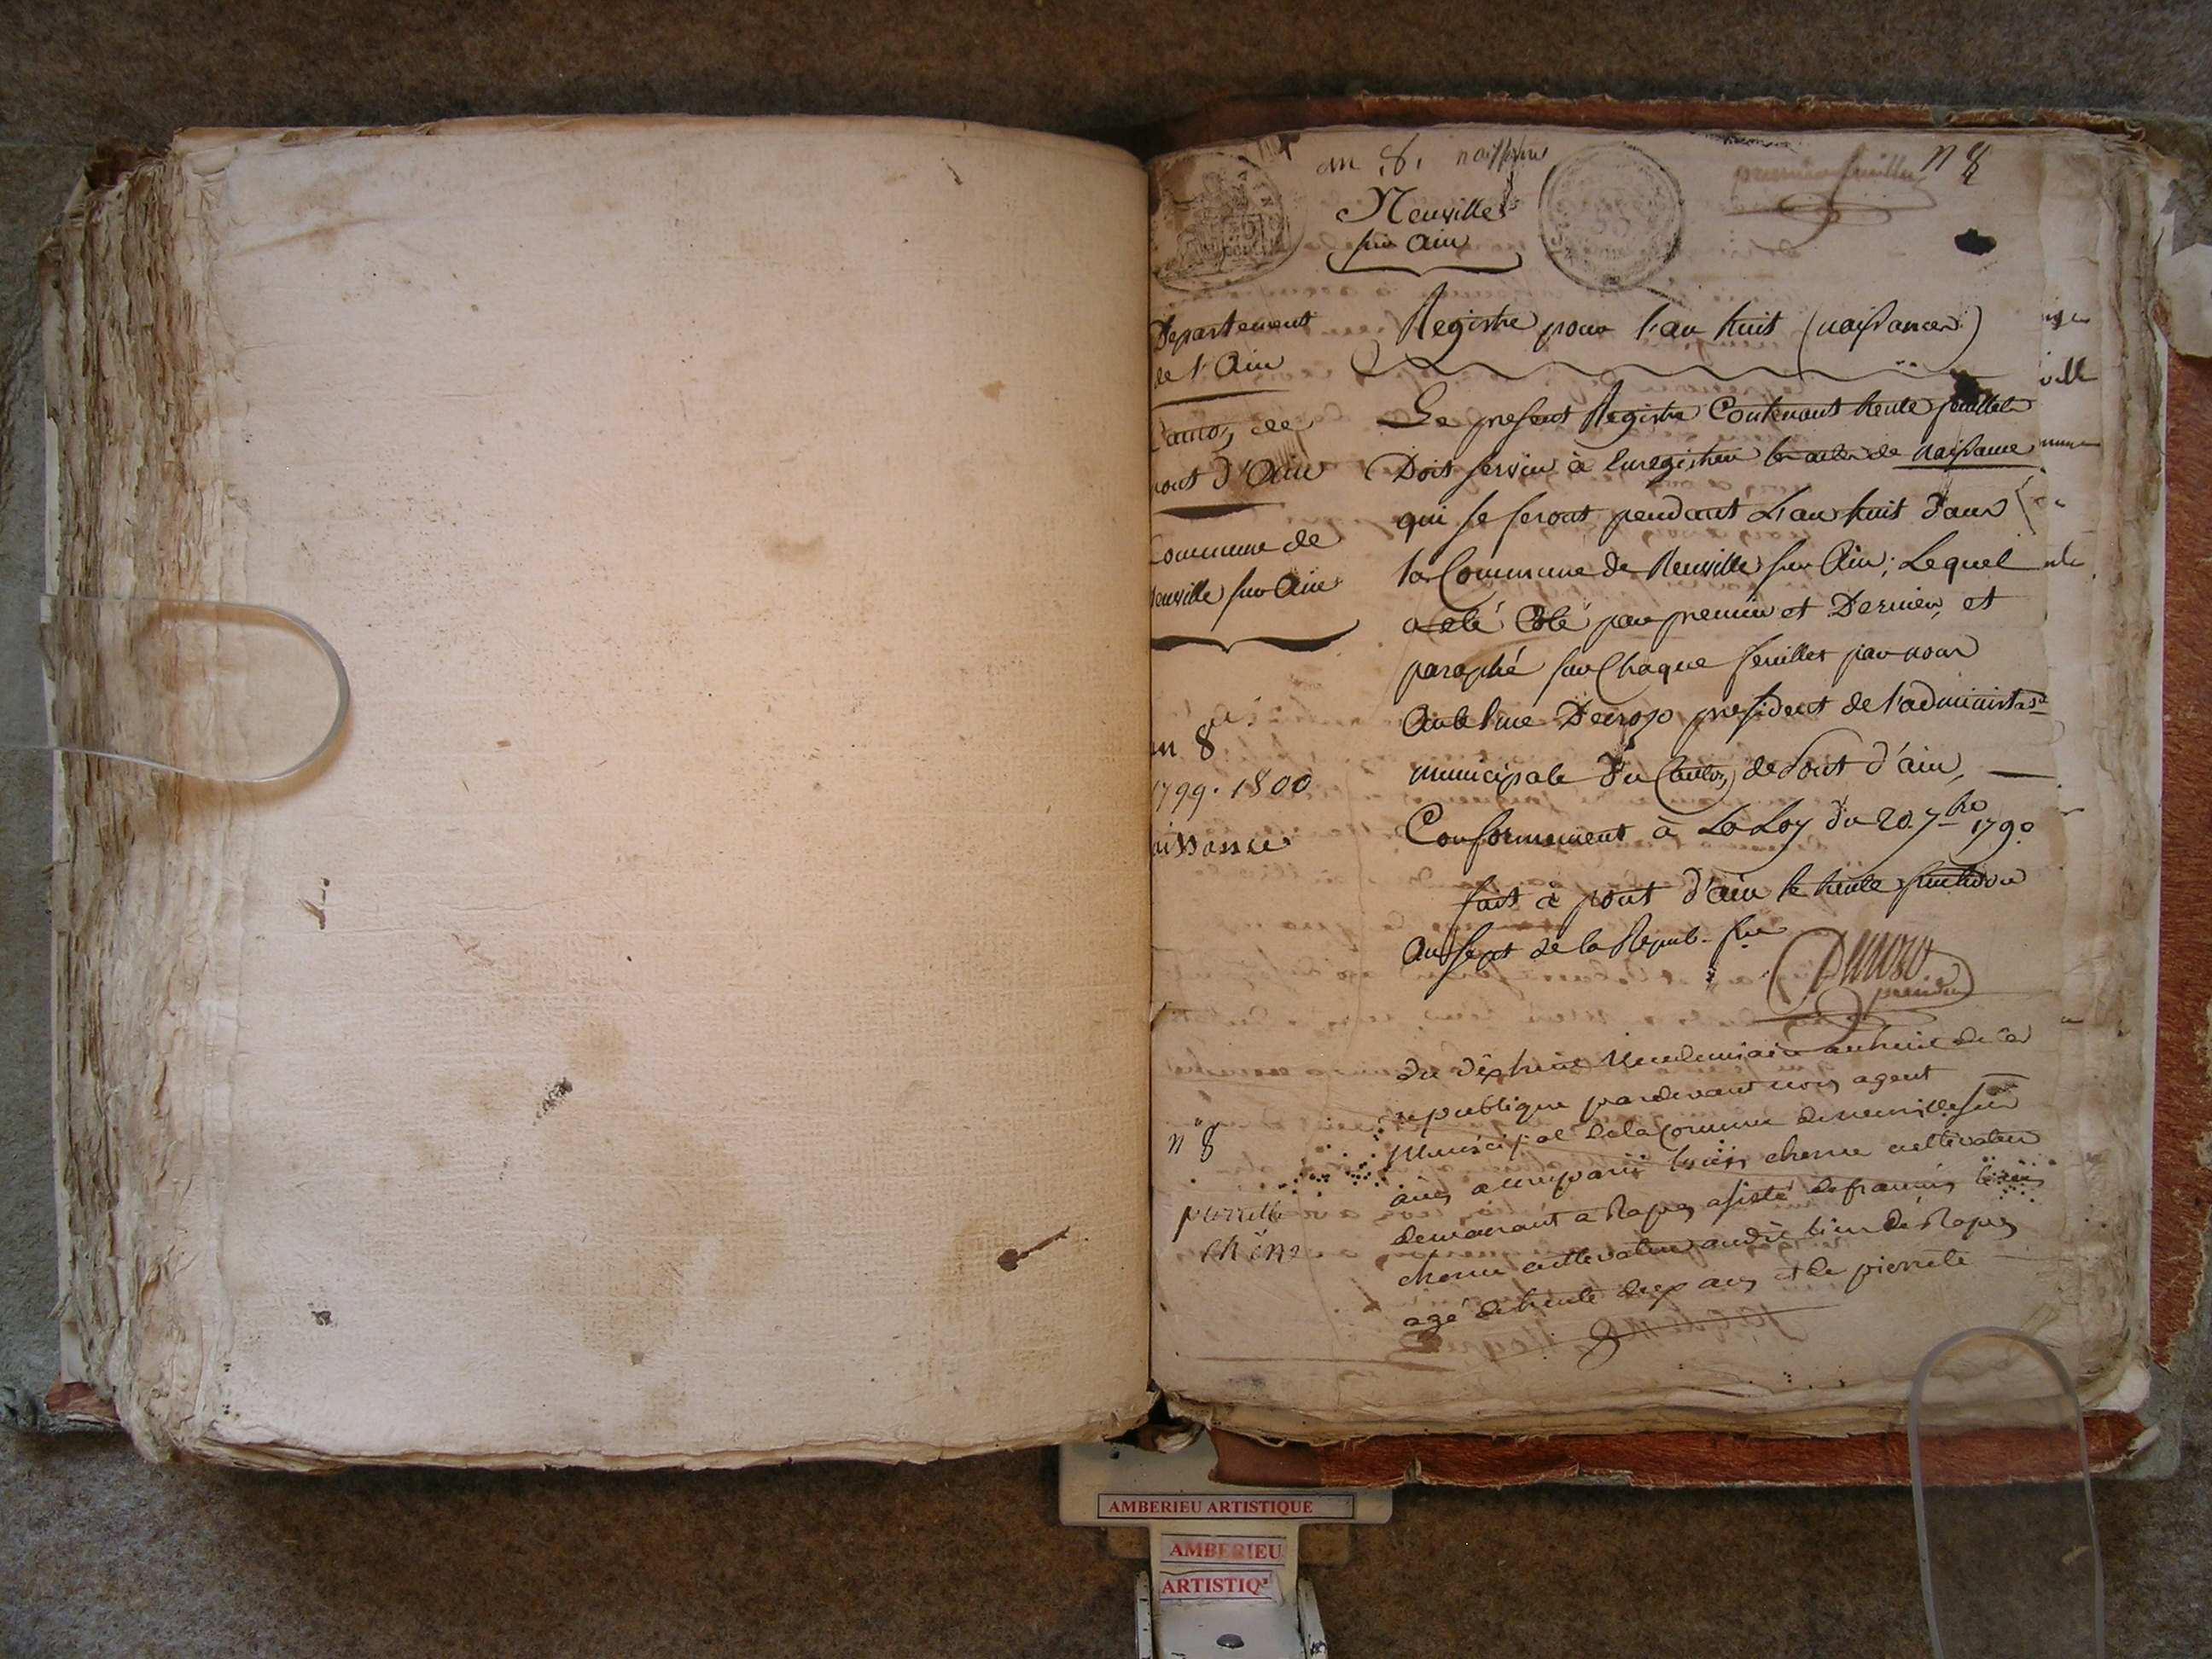 an 8. naissances
n 8
Neuville
sur Ain
premier feuillet
Departement
de l'Ain
Canton de
pont d'Ain
Commune de
Neuville sur Ain
an 8
1799. 1800
naissances
Registre pour l'an huit (naissances)
Le present Registre Contenant trente feuillets
Doit servir à Enregistrer les actes de naissance
qui se feront pendant L'an huit dans
la Commune de Neuville sur Ain; Lequel
a eté Coté par premier et Dernier, et
paraphé sur Chaque feuillet par nous
president de l'administraon
municipale du Canton de Pont d'ain,
Conformement à La Loy du 20 7bre 179
fait à pont d'ain le trente fructidor
an sept de la Repub. fse
president
du dixhuit Vendemiaire an huit de la
republique pardevant nous agent
Municipal de la Commune de neuville sur
ain a comparu chene cultivateur
demeurant a assisté de francois
chene cultivateur audit lieu de
agé de trente deux ans et de pierrette
n° 8
chêne
AMBERIEU ARTISTIQUE
AMBERIEU
ARTISTIQ